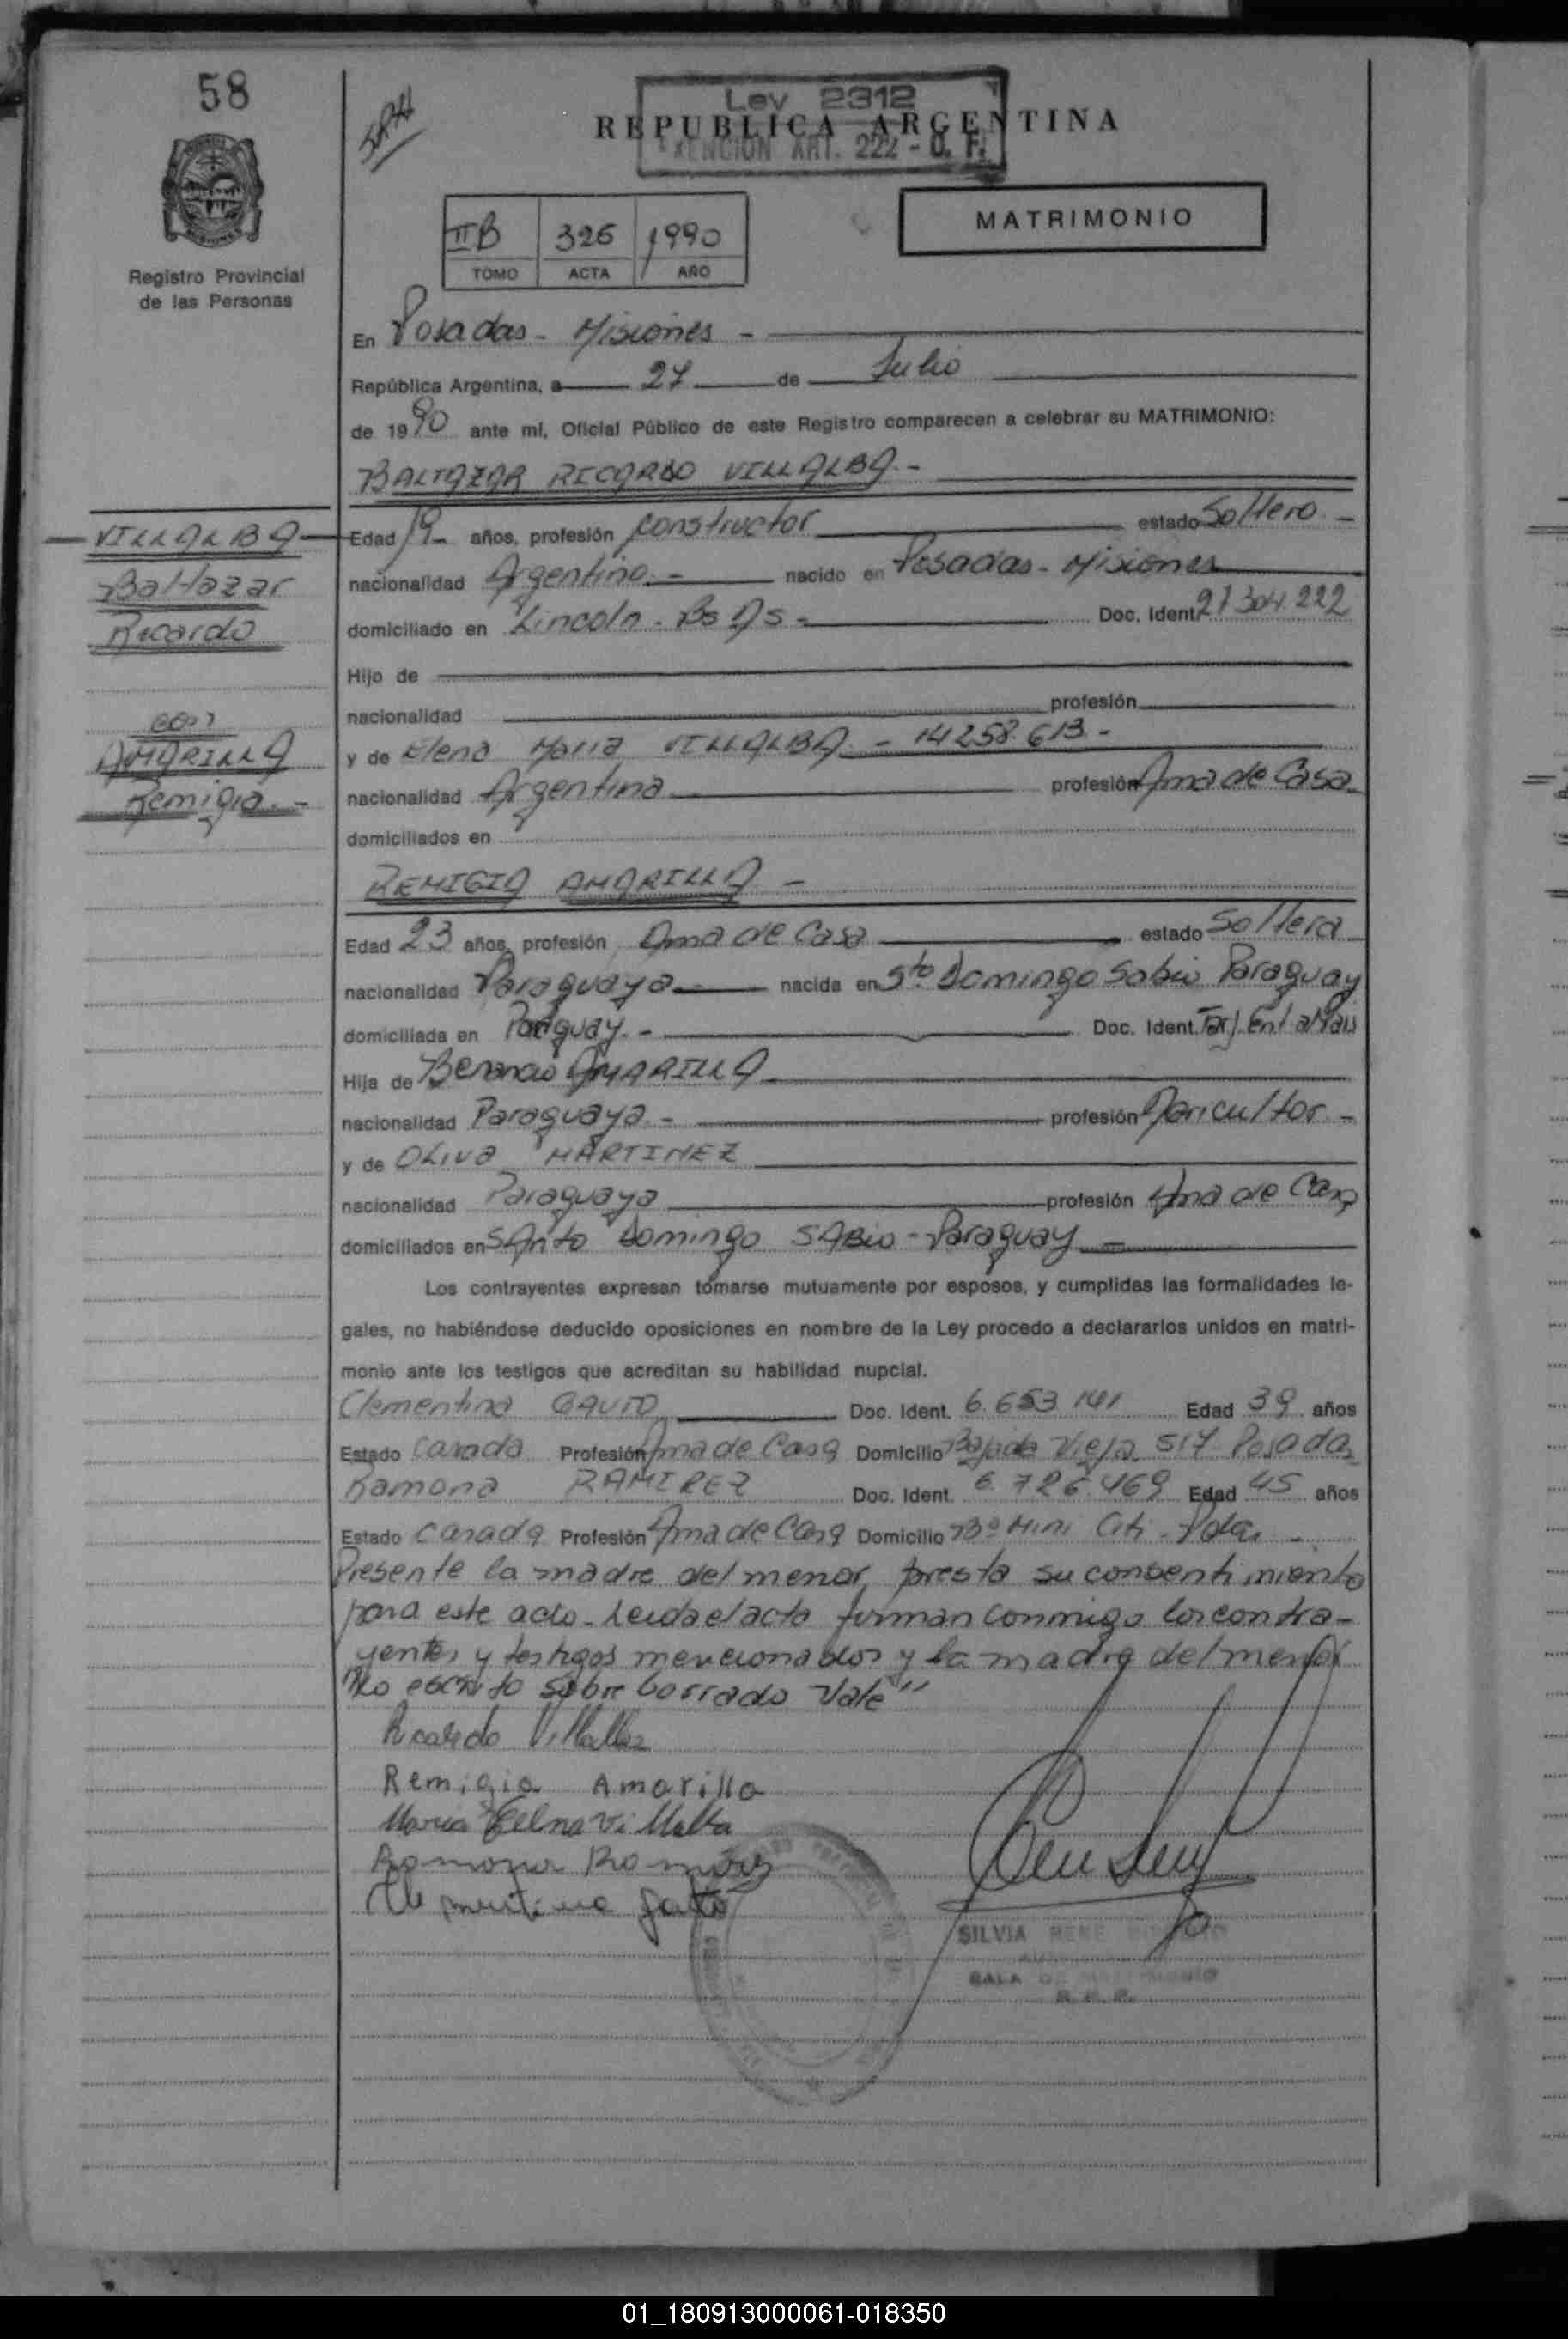 58
Ley 2312
REPUBLICA ARGENTINA
EXENCION ART. 222 - C. F.
IIB 326 1990
TOMO ACTA AÑO
MATRIMONIO
Registro Provincial
de las Personas
En Posadas - Misiones -
República Argentina, a 27 de Julio
de 1990 ante mí, Oficial Público de este Registro comparecen a celebrar su MATRIMONIO:
BALTAZAR RICARDO VILLALBA.-
VILLALBA
Baltazar
Ricardo
con
AMARILLA
Remigia.-
Edad 19- años, profesión constructor estado Soltero -
nacionalidad Argentino.- nacido en Posadas - Misiones
domiciliado en Lincoln - Bs As - Doc. Ident. 21304.222
Hijo de
nacionalidad profesión
y de Elena Maria VILLALBA - 14258.613 -
nacionalidad Argentina profesión Ama de Casa
domiciliados en
REMIGIA AMARILLA -
Edad 23 años, profesión Ama de Casa estado Soltera
nacionalidad Paraguaya nacida en Sto Domingo Sabio Paraguay
domiciliada en Paraguay.- Doc. Ident. Tarj. Ent. al Pais
Hija de AMARILLA
nacionalidad Paraguaya - profesión Agricultor -
y de OLIVA MARTINEZ
nacionalidad Paraguaya profesión Ama de Casa
domiciliados en SANTO Domingo SABIO - Paraguay -
Los contrayentes expresan tomarse mutuamente por esposos, y cumplidas las formalidades le-
gales, no habiéndose deducido oposiciones en nombre de la Ley procedo a declararlos unidos en matri-
monio ante los testigos que acreditan su habilidad nupcial.
Clementina GAUTO Doc. Ident. 6.653.141 Edad 39 años
Estado Casada Profesión Ama de Casa Domicilio Bajada Vieja 517 Posadas
Ramona RAMIREZ Doc. Ident. 6.726.469 Edad 45 años
Estado Casada Profesión Ama de Casa Domicilio Bº Mini Citi - Pdas -
Presente la madre del menor, presta su consentimiento
para este acto - Leida el acta firman conmigo los contra-
yentes y testigos mencionados y la madre del menor
"Lo escrito sobre borrado Vale"
Ricardo Villalba
Remigia Amarilla
Maria Elena Villalba
Ramona Ramirez
Clementina Gauto
SILVIA RENE
SALA DE MATRIMONIO
R. P. P.
01_180913000061-018350